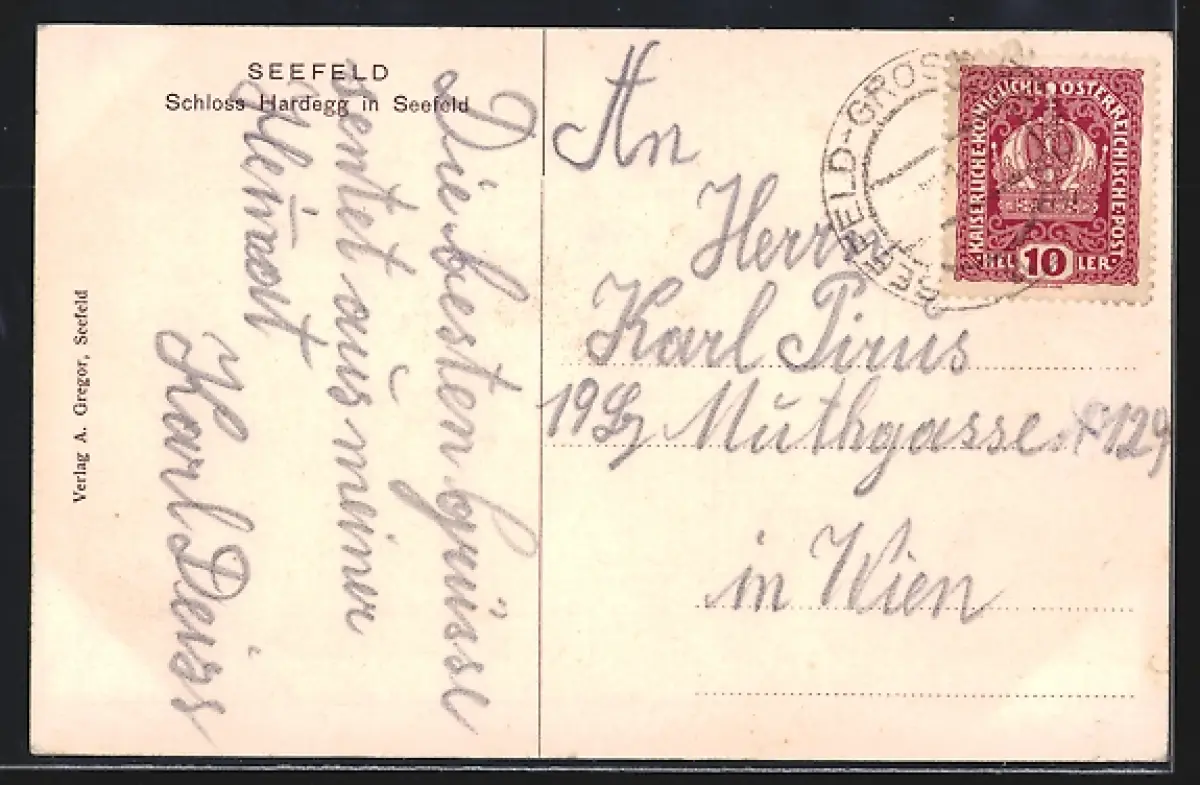 SEEFELD
Schloss Hardegg in Seefeld
Verlag A. Gregor, Seefeld
Die besten Grüsse
sentet aus meiner
Heimat
Karl Deiss
An
Herrn
Karl Pirus
19 Bz Muthgasse No 129
in Wien
SEEFELD-GROSS
KAISERLICHE·KÖNIGLICHE ÖSTERREICHISCHE·POST
HELLER
10